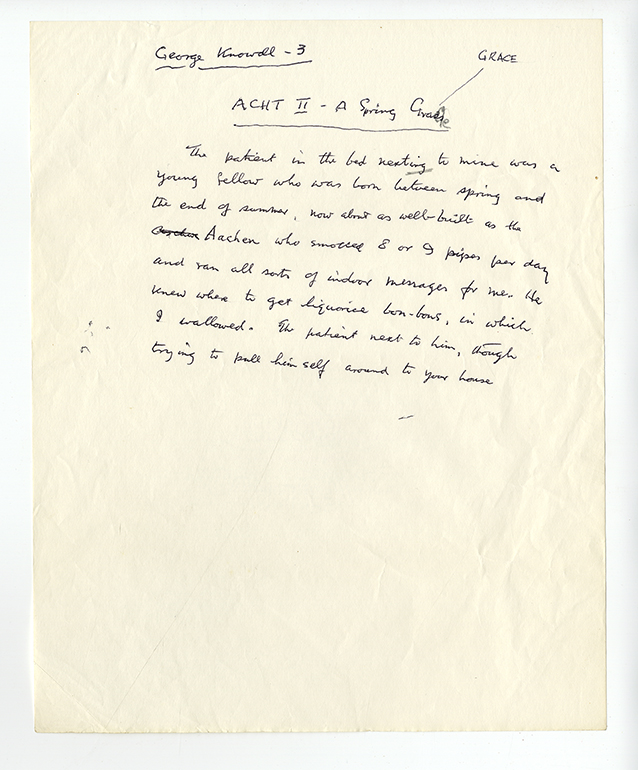 George Knowell - 3
GRACE
ACHT II - A Spring
The patient in the bed nexting to mine was a
young fellow who was born between spring and
the end of summer, now about as well-built as the
Aachen who smoked 8 or 9 pipes per day
and ran all sorts of indoor messages for me. He
knew where to get liquorice bon-bons, in which
I wallowed. The patient next to him, though
trying to pull himself around to your house